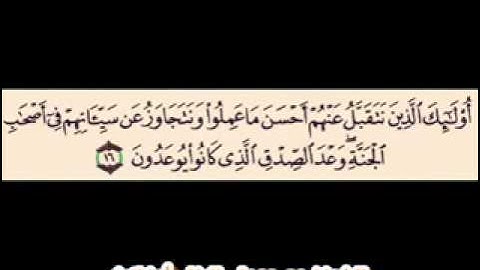 أُوْلَٰٓئِكَ ٱلَّذِينَ نَتَقَبَّلُ عَنْهُمْ أَحْسَنَ مَا عَمِلُوا۟ وَنَتَجَاوَزُ عَن سَيِّـَٔاتِهِمْ فِىٓ أَصْحَٰبِ
ٱلْجَنَّةِ ۖ وَعْدَ ٱلصِّدْقِ ٱلَّذِى كَانُوا۟ يُوعَدُونَ ١٦